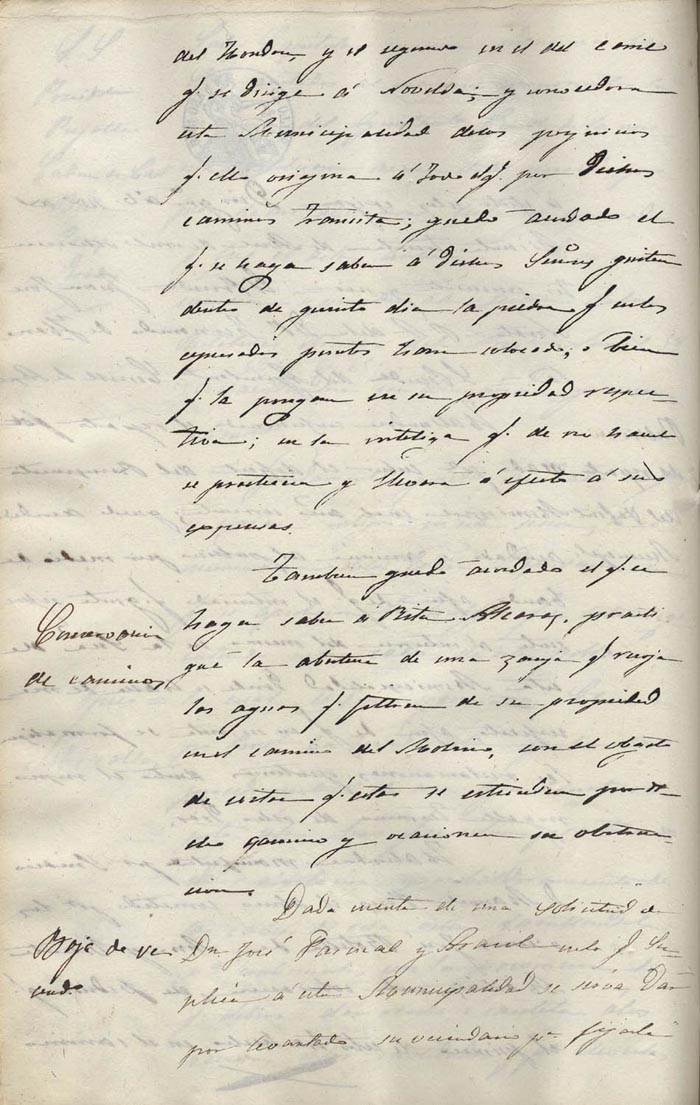 del Hondon, y el segundo en el del conie
q.e se dirige á Novelda; y conocedora
esta Municipalidad delos perjuicios
q.e ello origina á todo el q.e por dichos
caminos transita; quedó acordado el
q.e se haga saber á dichos Señores quiten
dentro de quinto dia la piedra q.e enlos
espresados puntos tienen colocada; o bien
q.e la pongan en su propiedad respec-
tiva; en la intelig.a q.e de no hacerlo
se practicará y llevará á efecto á sus
expensas.
Tambien quedó acordado el q.e se
Conservacion
de caminos
haga saber á Rita Alcaraz, practi
qué la abertura de una zanja q.e recoja
las aguas q.e filtran de su propiedad
en el camino del Molino, con el objeto
de evitar q.e estas se estiendan por di-
cho camino y ocasionen su obstruc-
cion.
Dada cuenta de una solicitud de
Baja de ve
cindo
Dn José Pascual y en la q.e su
plica á esta Municipalidad se sirva dar
por levantado su vecindario p.a fijarlo